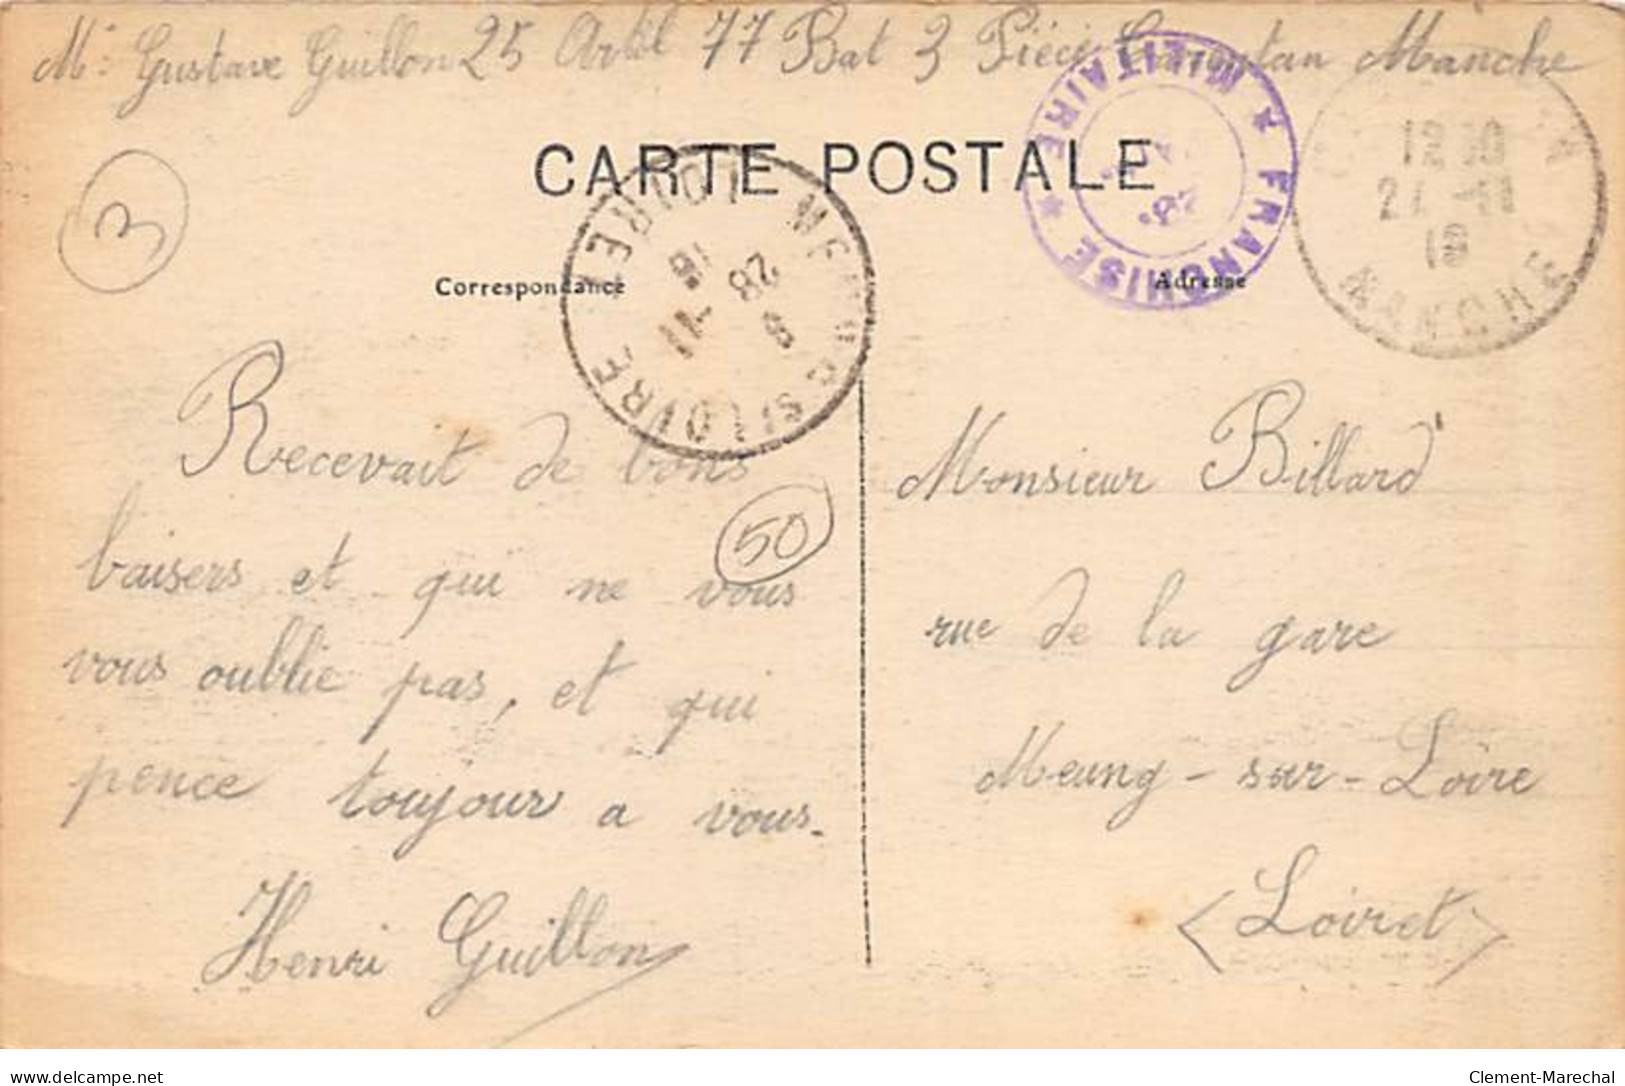 Mr Gustave Guillon 25 Artil 77 Bat 3 Pièce Carentan Manche
CARTE POSTALE
Correspondance
Adresse
3
FRANCHISE ★ MILITAIRE ★
12 30
27 - 11
MANCHE
MEUNG-S/LOIRE
LOIRET
8
28 - 11
16
Recevait de bons
baisers et qui ne vous
vous oublie pas, et qui
pence toujour a vous.
Henri Guillon
50
Monsieur Billard
rue de la gare
Meung-sur-Loire
<Loiret>
delcampe.net
Clement-Marechal